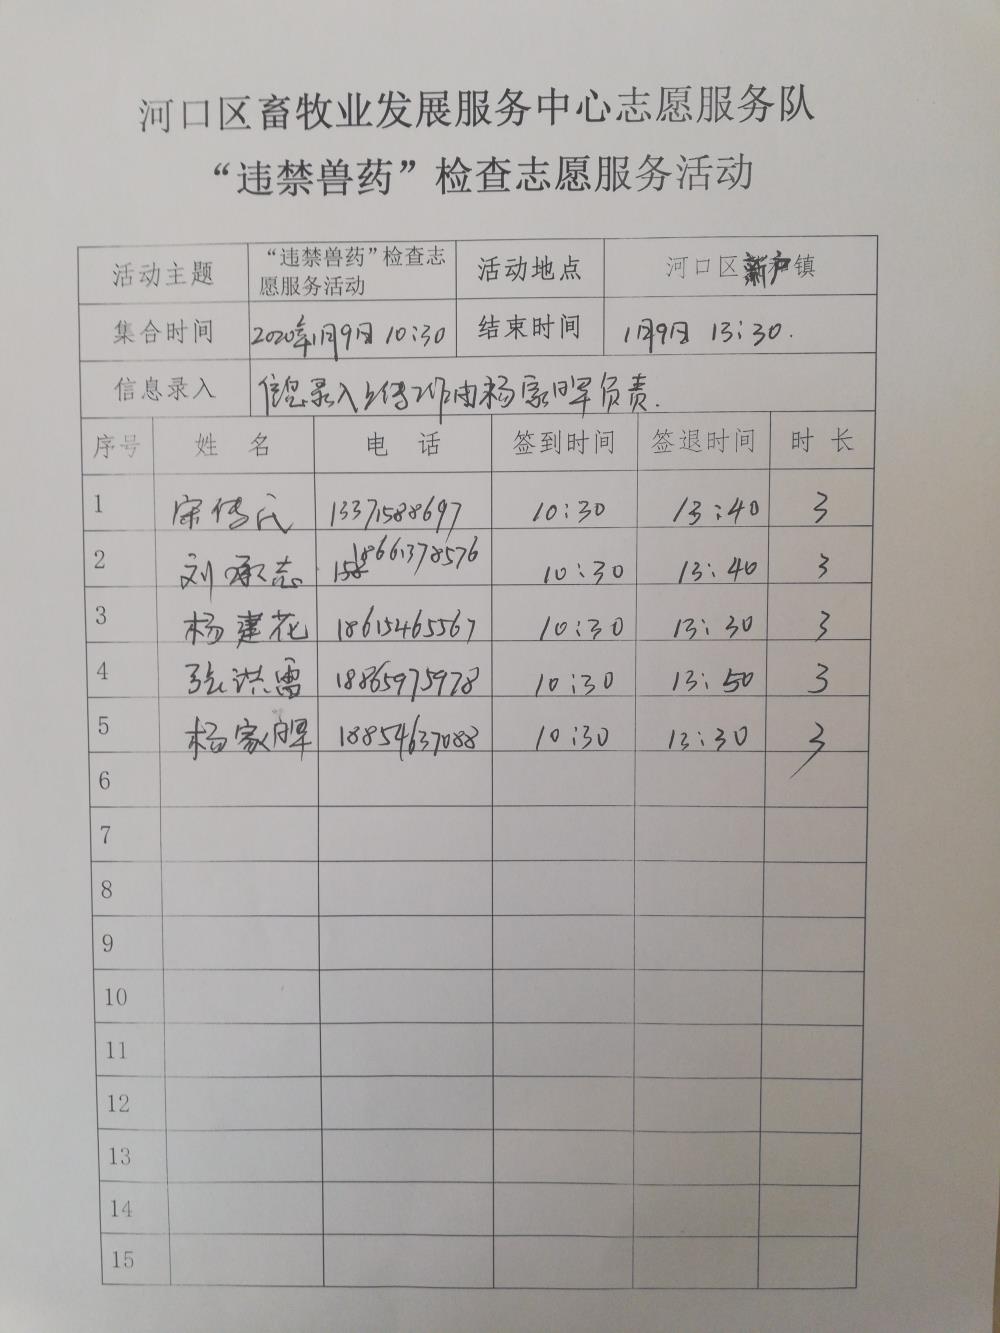 河口区畜牧业发展服务中心志愿服务队
“违禁兽药”检查志愿服务活动
活动主题 “违禁兽药”检查志 活动地点 河口区新户镇
愿服务活动
集合时间 2020年1月9日 10:30 结束时间 1月9日 13:30.
信息录入 信息录入上传工作由杨家晖负责.
序号 姓 名 电 话 签到时间 签退时间 时 长
1 宋传氏 13371588697 10:30 13:40 3
2 刘承志 18661378576 10:30 13:40 3
3 杨建花 18615465567 10:30 13:30 3
4 张洪雷 18865975978 10:30 13:50 3
5 杨家晖 18854637088 10:30 13:30 3
6
7
8
9
10
11
12
13
14
15